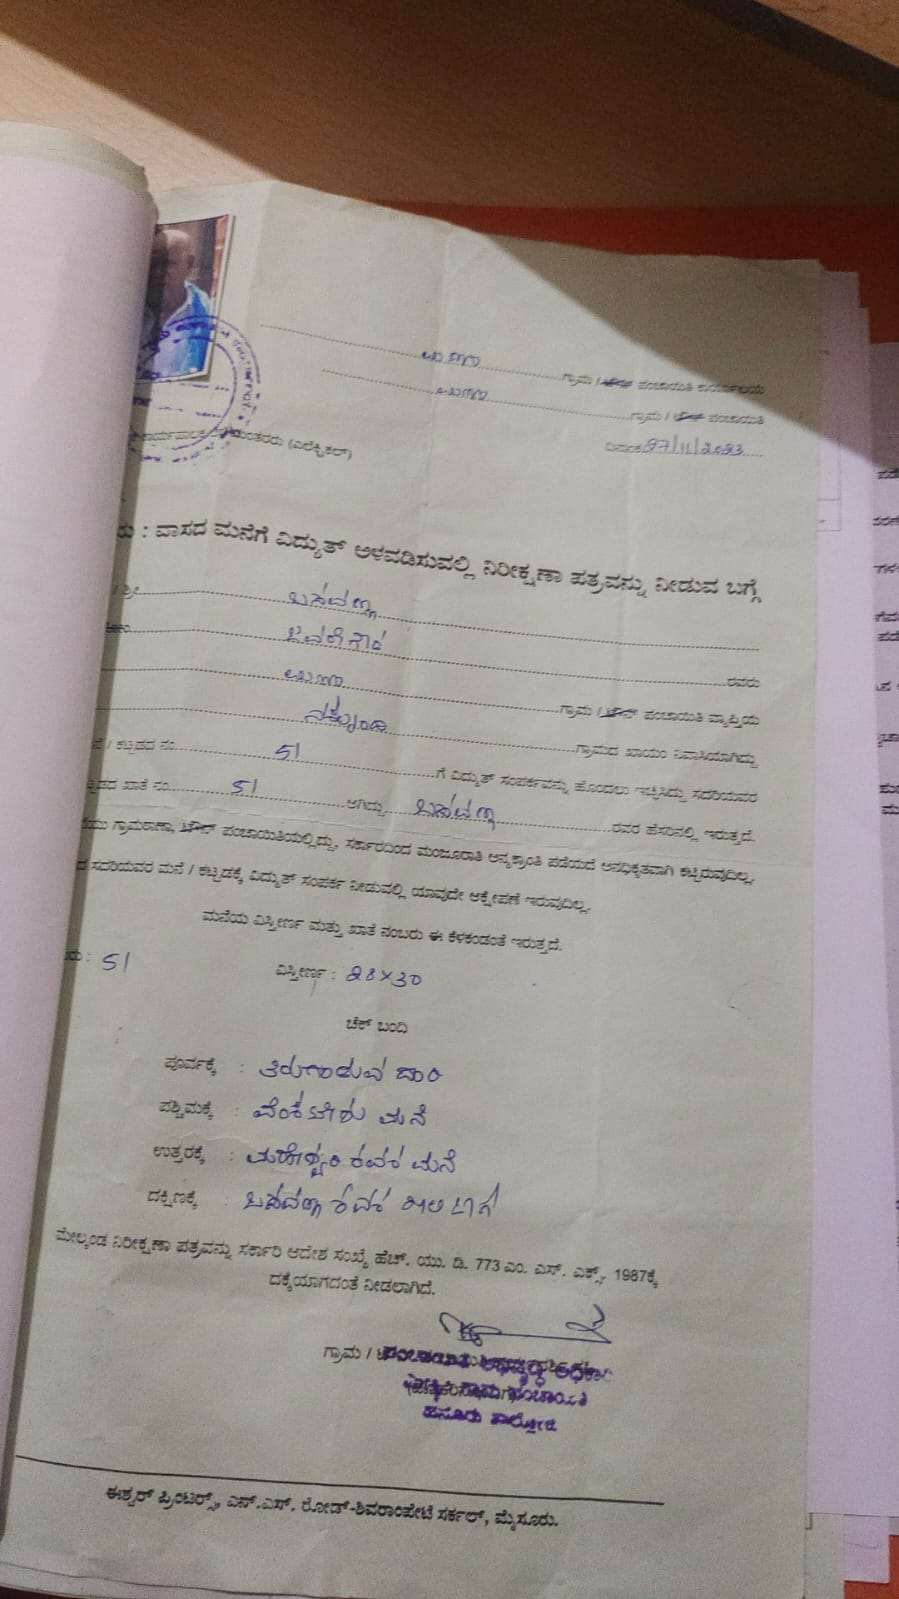 ಗ್ರಾಮ / ಟೌನ್ ಪಂಚಾಯಿತಿ ಕಾರ್ಯಾಲಯ
ಗ್ರಾಮ / ಟೌನ್ ಪಂಚಾಯಿತಿ
ದಿನಾಂಕ 27/11/2023
(ಎಲೆಕ್ಟ್ರಿಕಲ್)
: ವಾಸದ ಮನೆಗೆ ವಿದ್ಯುತ್ ಅಳವಡಿಸುವಲ್ಲಿ ನಿರೀಕ್ಷಣಾ ಪತ್ರವನ್ನು ನೀಡುವ ಬಗ್ಗೆ
ಬಸವಣ್ಣ
ಜವರೇಗೌಡ ರವರು
ಗ್ರಾಮ / ಟೌನ್ ಪಂಚಾಯಿತಿ ವ್ಯಾಪ್ತಿಯ
ಗ್ರಾಮದ ಖಾಯಂ ನಿವಾಸಿಯಾಗಿದ್ದು
/ ಕಟ್ಟಡದ ನಂ. 51 ಗೆ ವಿದ್ಯುತ್ ಸಂಪರ್ಕವನ್ನು ಹೊಂದಲು ಇಚ್ಛಿಸಿದ್ದು ಸದರಿಯವರ
ಖಾತೆ ನಂ. 51 ಆಗಿದ್ದು ಬಸವಣ್ಣ ರವರ ಹೆಸರಿನಲ್ಲಿ ಇರುತ್ತದೆ.
ಗ್ರಾಮಠಾಣಾ, ಟೌನ್ ಪಂಚಾಯಿತಿಯಲ್ಲಿದ್ದು, ಸರ್ಕಾರದಿಂದ ಮಂಜೂರಾತಿ ಅನ್ಯಕ್ರಾಂತಿ ಪಡೆಯದೆ ಅನಧಿಕೃತವಾಗಿ ಕಟ್ಟಿರುವುದಿಲ್ಲ.
ಸದರಿಯವರ ಮನೆ / ಕಟ್ಟಡಕ್ಕೆ ವಿದ್ಯುತ್ ಸಂಪರ್ಕ ನೀಡುವಲ್ಲಿ ಯಾವುದೇ ಆಕ್ಷೇಪಣೆ ಇರುವುದಿಲ್ಲ.
ಮನೆಯ ವಿಸ್ತೀರ್ಣ ಮತ್ತು ಖಾತೆ ನಂಬರು ಈ ಕೆಳಕಂಡಂತೆ ಇರುತ್ತದೆ.
: 51 ವಿಸ್ತೀರ್ಣ : 28×30
ಚೆಕ್ ಬಂದಿ
ಪೂರ್ವಕ್ಕೆ : ತಿರುಗಾಡುವ ದಾರಿ
ಪಶ್ಚಿಮಕ್ಕೆ : ವೆಂಕಟೇಶು ಮನೆ
ಉತ್ತರಕ್ಕೆ : ರವರ ಮನೆ
ದಕ್ಷಿಣಕ್ಕೆ : ಬಸವಣ್ಣ ರವರ
ಮೇಲ್ಕಂಡ ನಿರೀಕ್ಷಣಾ ಪತ್ರವನ್ನು ಸರ್ಕಾರಿ ಆದೇಶ ಸಂಖ್ಯೆ ಹೆಚ್. ಯು. ಡಿ. 773 ಎಂ. ಎಸ್. ಎಕ್ಸ್. 1987ಕ್ಕೆ
ದಕ್ಕೆಯಾಗದಂತೆ ನೀಡಲಾಗಿದೆ.
ಗ್ರಾಮ /
ಪಂಚಾಯಿತಿ ಅಭಿವೃದ್ಧಿ ಅಧಿಕಾರಿ
ಗ್ರಾಮ ಪಂಚಾಯಿತಿ
ಈಶ್ವರ್ ಪ್ರಿಂಟರ್ಸ್, ಎನ್.ಎಸ್. ರೋಡ್-ಶಿವರಾಂಪೇಟೆ ಸರ್ಕಲ್, ಮೈಸೂರು.